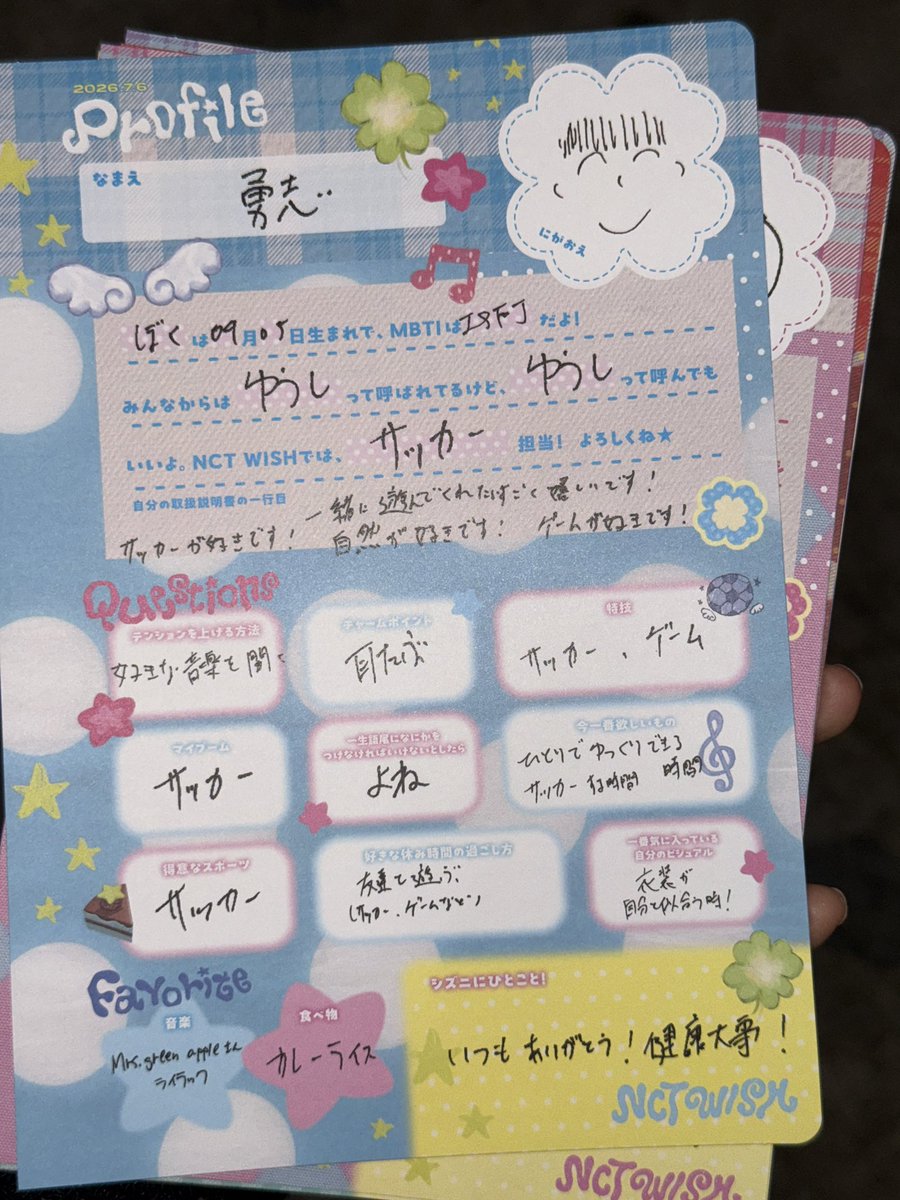 2026.7.6
Profile
なまえ
勇志
にがおえ
ぼくは09月05日生まれで、MBTIはISFJだよ！
みんなからはゆうしって呼ばれてるけど、ゆうしって呼んでも
いいよ。NCT WISHでは、サッカー担当！よろしくね★
自分の取扱説明書の一行目
一緒に遊んでくれたらすごく嬉しいです！
サッカーが好きです！ 自然が好きです！ ゲームが好きです！
Questions
テンションを上げる方法
好きな音楽を聞く
チャームポイント
耳たぶ
特技
サッカー、ゲーム
マイブーム
サッカー
一生語尾になにかを
つけなければいけないとしたら
よね
今一番欲しいもの
ひとりでゆっくりできる
時間
サッカーする時間
得意なスポーツ
サッカー
好きな休み時間の過ごし方
友達と遊ぶ
(サッカー、ゲームなど)
一番気に入っている
自分のビジュアル
衣装が
自分と似合う時！
Favorite
音楽
Mrs.green appleさん
ライラック
食べ物
カレーライス
シズニにひとこと！
いつもありがとう！健康大事！
NCT WISH
NCT WISH